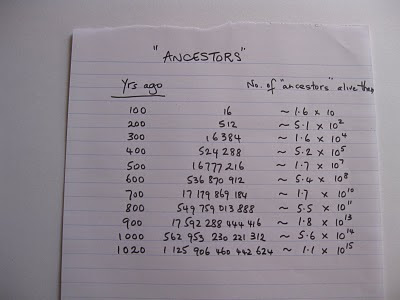 "ANCESTORS"
Yrs ago No. of "ancestors" alive then
100 16 ~ 1.6 x 10
200 512 ~ 5.1 x 10²
300 16 384 ~ 1.6 x 10⁴
400 524 288 ~ 5.2 x 10⁵
500 16 777 216 ~ 1.7 x 10⁷
600 536 870 912 ~ 5.4 x 10⁸
700 17 179 869 184 ~ 1.7 x 10¹⁰
800 549 759 013 888 ~ 5.5 x 10¹¹
900 17 592 288 444 416 ~ 1.8 x 10¹³
1000 562 953 230 221 312 ~ 5.6 x 10¹⁴
1020 1 125 906 460 442 624 ~ 1.1 x 10¹⁵